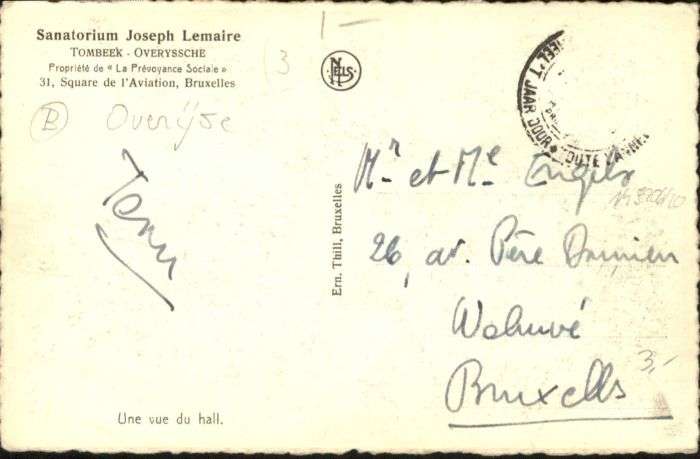 Sanatorium Joseph Lemaire
TOMBEEK - OVERYSSCHE
Propriété de « La Prévoyance Sociale »
31, Square de l'Aviation, Bruxelles
1-
3
NELS
HEEL 'T JAAR DOOR ★ TOUTE L'ANNÉ
B Overijse
Mr et Me Engels
26, av. Père Damien
Woluwé
Bruxelles
Ern. Thill, Bruxelles
3,-
Une vue du hall.